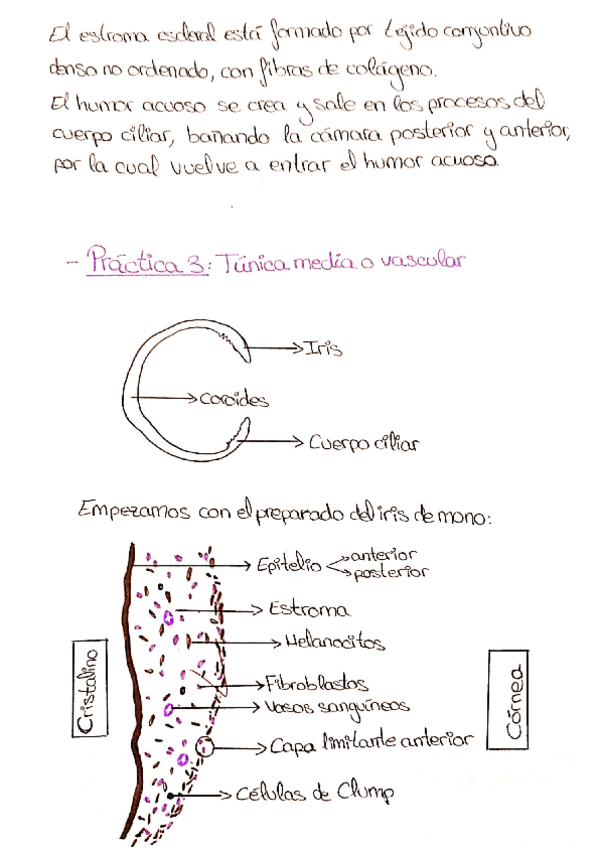 El estroma escleral está formado por tejido conjuntivo
denso no ordenado, con fibras de colágeno.
El humor acuoso se crea y sale en los procesos del
cuerpo ciliar, bañando la cámara posterior y anterior,
por la cual vuelve a entrar el humor acuoso.
- Práctica 3: Túnica media o vascular
Iris
Coroides
Cuerpo ciliar
Empezamos con el preparado del iris de mono:
Epitelio anterior
posterior
Estroma
Melanocitos
Fibroblastos
Vasos sanguíneos
Capa limitante anterior
Células de Clump
Cristalino
Córnea